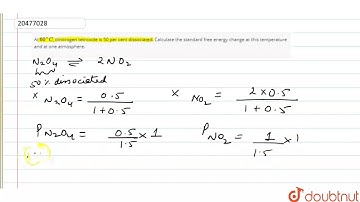 20477028
At 60° C, dinitrogen tetroxide is 50 per cent dissociated. Calculate the standard free energy change at this temperature
and at one atmosphere.
N₂O₄ ⇌ 2NO₂
50% dissociated
x N₂O₄ = 0.5 / 1+0.5 x NO₂ = 2×0.5 / 1+0.5
P N₂O₄ = 0.5 / 1.5 × 1 P NO₂ = 1 / 1.5 × 1
doubtnut